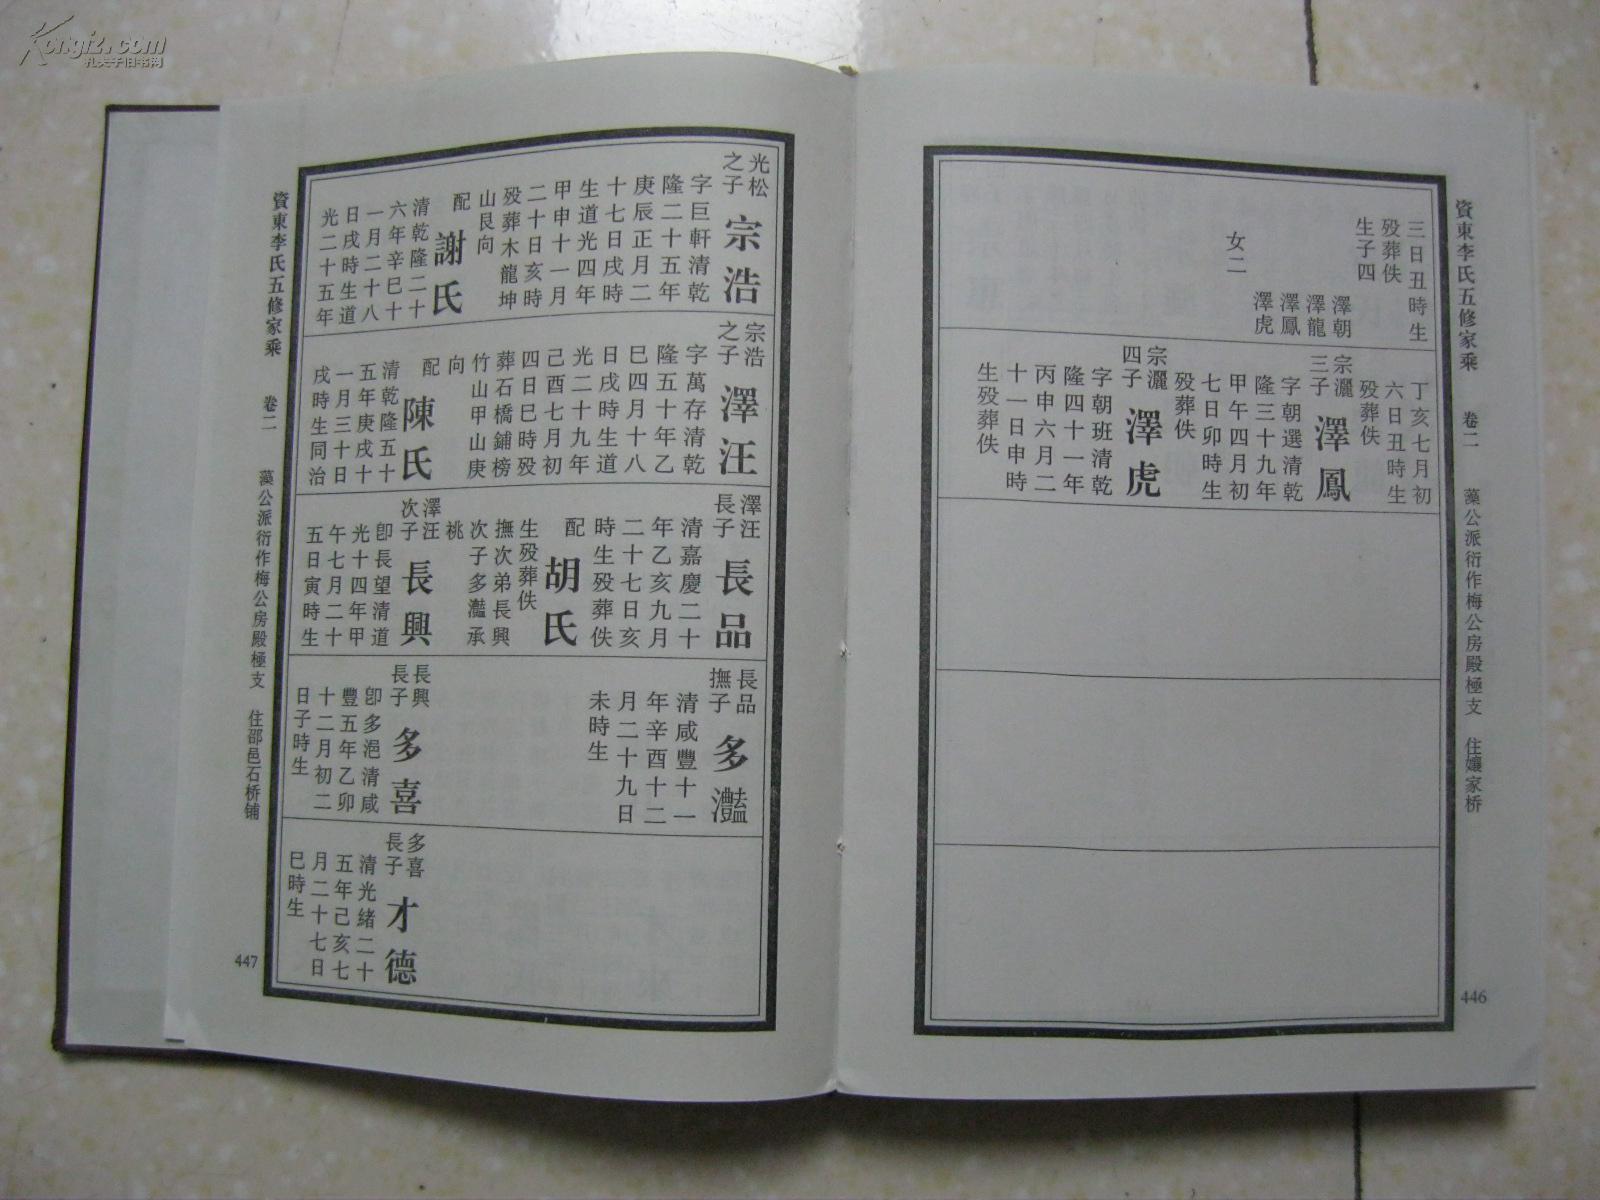 Kongfz.com
孔夫子旧书网
資東李氏五修家乘 卷二 藻公派衍作梅公房殿極支 住孃家桥
446
三日丑時生
歿葬佚
生子四
澤朝
澤龍
澤鳳
澤虎
女二
丁亥七月初
六日丑時生
歿葬佚
宗灑
三子
澤鳳
字朝選清乾
隆三十九年
甲午四月初
七日卯時生
歿葬佚
宗灑
四子
澤虎
字朝班清乾
隆四十一年
丙申六月二
十一日申時
生歿葬佚
光松
之子
宗浩
字巨軒清乾
隆二十五年
庚辰正月二
十七日戌時
生道光四年
甲申十一月
二十日亥時
歿葬木龍坤
山艮向
配
謝氏
清乾隆二十
六年辛巳十
一月二十八
日戌時生道
光二十五年
宗浩
之子
澤汪
字萬存清乾
隆五十年乙
巳四月十八
日戌時生道
光二十九年
己酉七月初
四日巳時歿
葬石橋鋪榜
竹山甲山庚
向
配
陳氏
清乾隆五十
五年庚戌十
一月三十日
戌時生同治
澤汪
長子
長品
清嘉慶二十
年乙亥九月
二十七日亥
時生歿葬佚
配
胡氏
生歿葬佚
撫次弟長興
次子多灩承
祧
澤汪
次子
長興
卽長望清道
光十四年甲
午七月二十
五日寅時生
長品
撫子
多灩
清咸豐十一
年辛酉十二
月二十九日
未時生
長興
長子
多喜
卽多浥清咸
豐五年乙卯
十二月初二
日子時生
多喜
長子
才德
清光緒二十
五年己亥七
月二十七日
巳時生
資東李氏五修家乘 卷二 藻公派衍作梅公房殿極支 住邵邑石桥铺
447